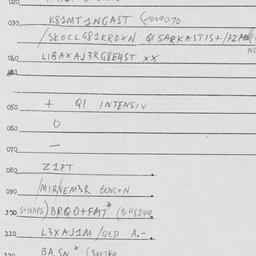 020
030 K81MT1NGAST (F009070
/SKOCLG81KROXN QISARKAST1S+/AZA
040 LIBAXAJ3RG8E4ST XX
050 + QI INTENSIV
060 0
070 —
080 Z1PT
090 /MIRNEM3R BENC+N
100 S+NAPS)BRQO+FM7* (848249
110 L3XAJ1M /QED A.-
120 BA.SN*